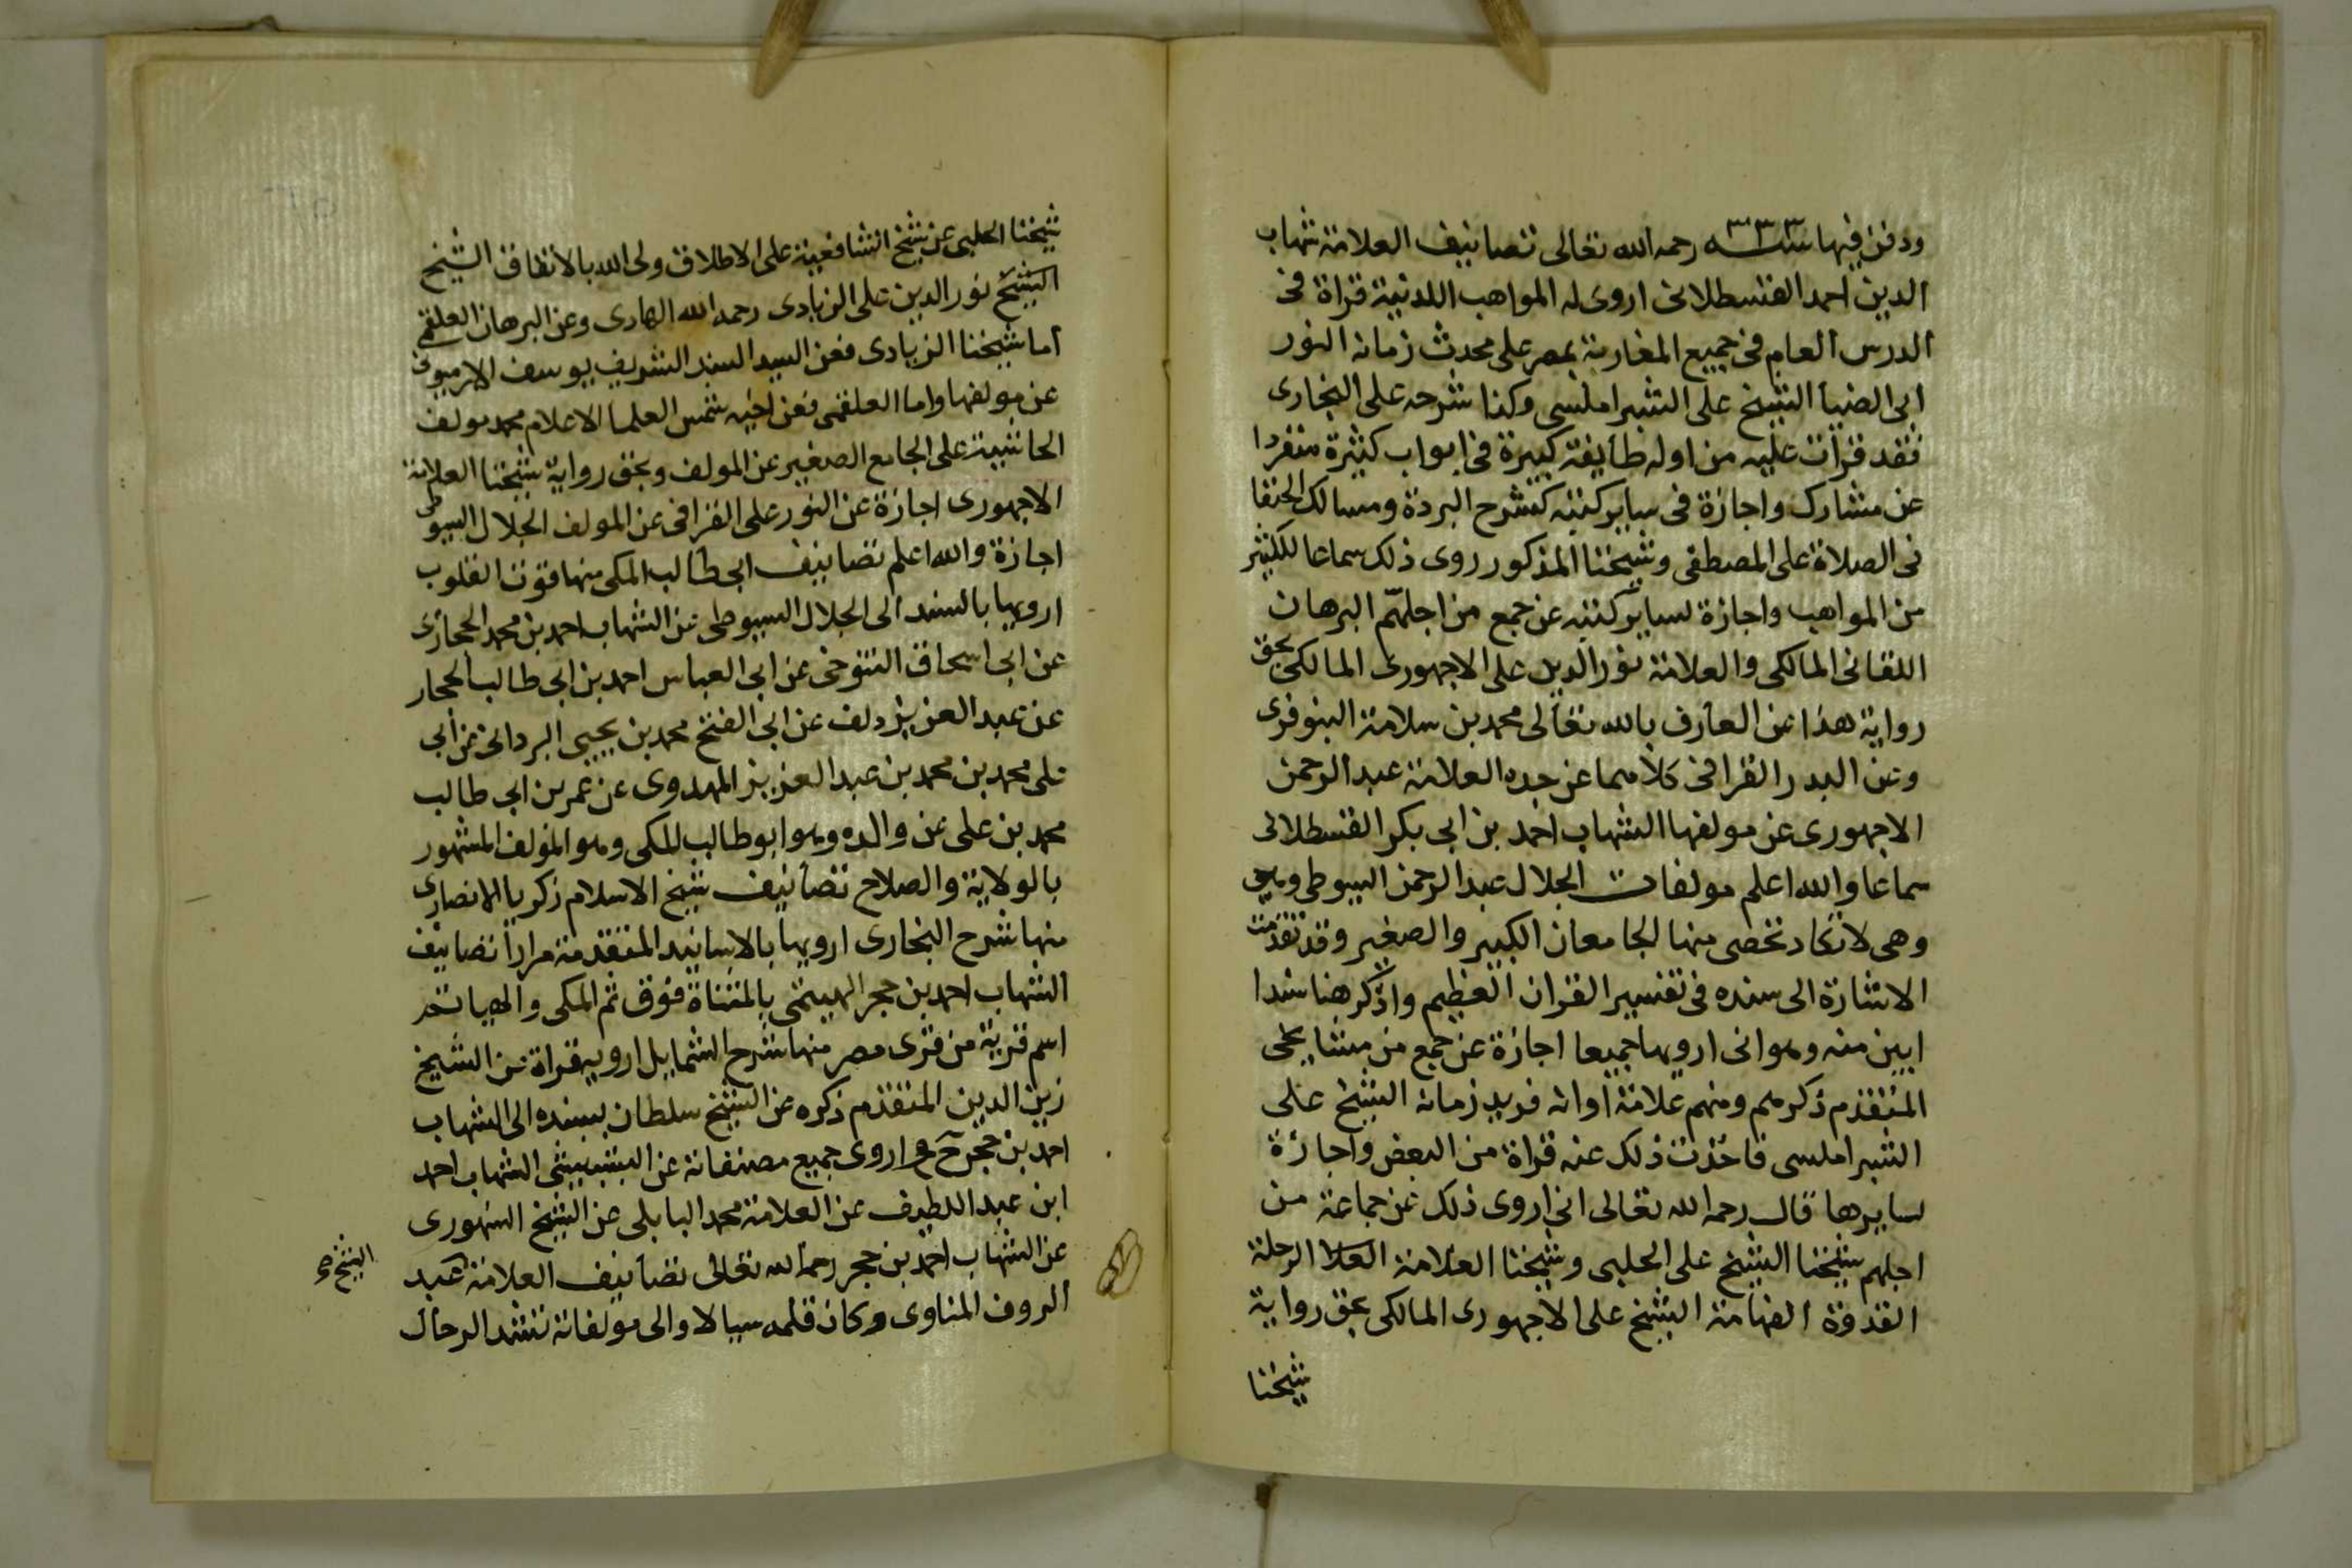 ودفن فيها سنة ٣٣٣ رحمه الله تعالى تصانيف العلامة شهاب
الدين احمد القسطلانى اروى له المواهب اللدنية قراة فى
الدرس العام فى جميع المغاربة بمصر على محدث زمانه النور
ابى الضيا الشيخ على الشبراملسى وكذا شرحه على البخارى
فقد قرات عليه من اوله طايفة كبيرة فى ابواب كثيرة منفردا
عن مشارك واجازة فى ساير كتبه كشرح البردة ومسالك الحنفا
فى الصلاة على المصطفى وشيخنا المذكور روى ذلك سماعا للكثير
من المواهب واجازة لساير كتبه عن جمع من اجلهم البرهان
اللقانى المالكى والعلامة نور الدين على الاجهورى المالكى بحق
رواية هذا عن العارف بالله تعالى محمد بن سلامة البنوفرى
وعن البدر القرافى كلاهما عن جده العلامة عبد الرحمن
الاجهورى عن مولفها الشهاب احمد بن ابى بكر القسطلانى
سماعا والله اعلم مولفات الجلال عبد الرحمن السيوطى وهى
وهى لا تكاد تحصى منها الجامعان الكبير والصغير وقد تقدمت
الاشارة الى سنده فى تفسير القران العظيم واذكر هنا سندا
ابين منه وهو انى ارويها جميعا اجازة عن جمع من مشايخى
المتقدم ذكرهم ومنهم علامة اوانه فريد زمانه الشيخ على
الشبراملسى فاخذت ذلك عنه قراة من البعض واجازة
لسايرها قال رحمه الله تعالى انى اروى ذلك عن جماعة من
اجلهم شيخنا الشيخ على الحلبى وشيخنا العلامة العلا الرحلة
القدوة الفهامة الشيخ على الاجهورى المالكى بحق رواية
شيخنا
شيخنا الحلبى عن شيخ الشافعية على الاطلاق ولى الله بالاتفاق الشيخ
الشيخ نور الدين على الزيادى رحمه الله الهادى وعن البرهان العلقمى
اما شيخنا الزيادى فعن السيد السند الشريف يوسف الارميونى
عن مولفها واما العلقمى فعن اخيه شمس العلما الاعلام محمد مولف
الحاشية على الجامع الصغير عن المولف وبحق رواية شيخنا العلامة
الاجهورى اجازة عن النور على القرافى عن المولف الجلال السيوطى
اجازة والله اعلم تصانيف ابى طالب المكى منها قوت القلوب
ارويها بالسند الى الجلال السيوطى عن الشهاب احمد بن محمد الحجازى
عن ابى اسحاق التنوخى عن ابى العباس احمد بن ابى طالب الحجار
عن عبد العزيز دلف عن ابى الفتح محمد بن يحيى البردانى عن ابى
على محمد بن محمد بن عبد العزيز المهدوى عن عمر بن ابى طالب
محمد بن على عن والده وهو ابو طالب المكى وهو المولف المشهور
بالولاية والصلاح تصانيف شيخ الاسلام زكريا الانصارى
منها شرح البخارى ارويها بالاسانيد المتقدمة مرارا تصانيف
الشهاب احمد بن حجر الهيتمى بالمثناة فوق ثم المكى والهياتم
اسم قرية من قرى مصر منها شرح الشمايل ارويه قراة عن الشيخ
زين الدين المتقدم ذكره عن الشيخ سلطان بسنده الى الشهاب
احمد بن حجر ح واروى جميع مصنفاته عن البشبيشى الشهاب احمد
ابن عبد اللطيف عن العلامة محمد البابلى عن الشيخ السنهورى
عن الشهاب احمد بن حجر رحمه الله تعالى تصانيف العلامة عبد
الشيخ صح
الروف المناوى وكان قلمه سيالا والى مولفاته تشد الرحال